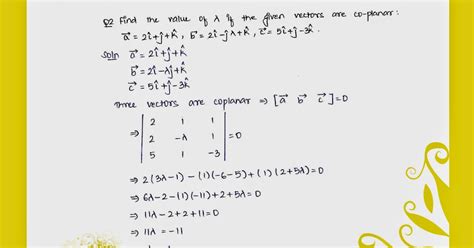 Q2 Find the value of λ if the given vectors are co-planar:
a⃗ = 2î+ĵ+k̂, b⃗ = 2î-ĵλ+k̂, c⃗ = 5î+ĵ-3k̂.
Soln a⃗ = 2î+ĵ+k̂
b⃗ = 2î-λĵ+k̂
c⃗ = 5î+ĵ-3k̂
Three vectors are coplanar ⇒ [a⃗ b⃗ c⃗]=0
⇒ | 2 1 1 |
| 2 -λ 1 | =0
| 5 1 -3 |
⇒ 2(3λ-1) - (1)(-6-5)+(1)(2+5λ)=0
⇒ 6λ-2-(1)(-11)+2+5λ=0
⇒ 11λ-2+2+11=0
⇒ 11λ = -11